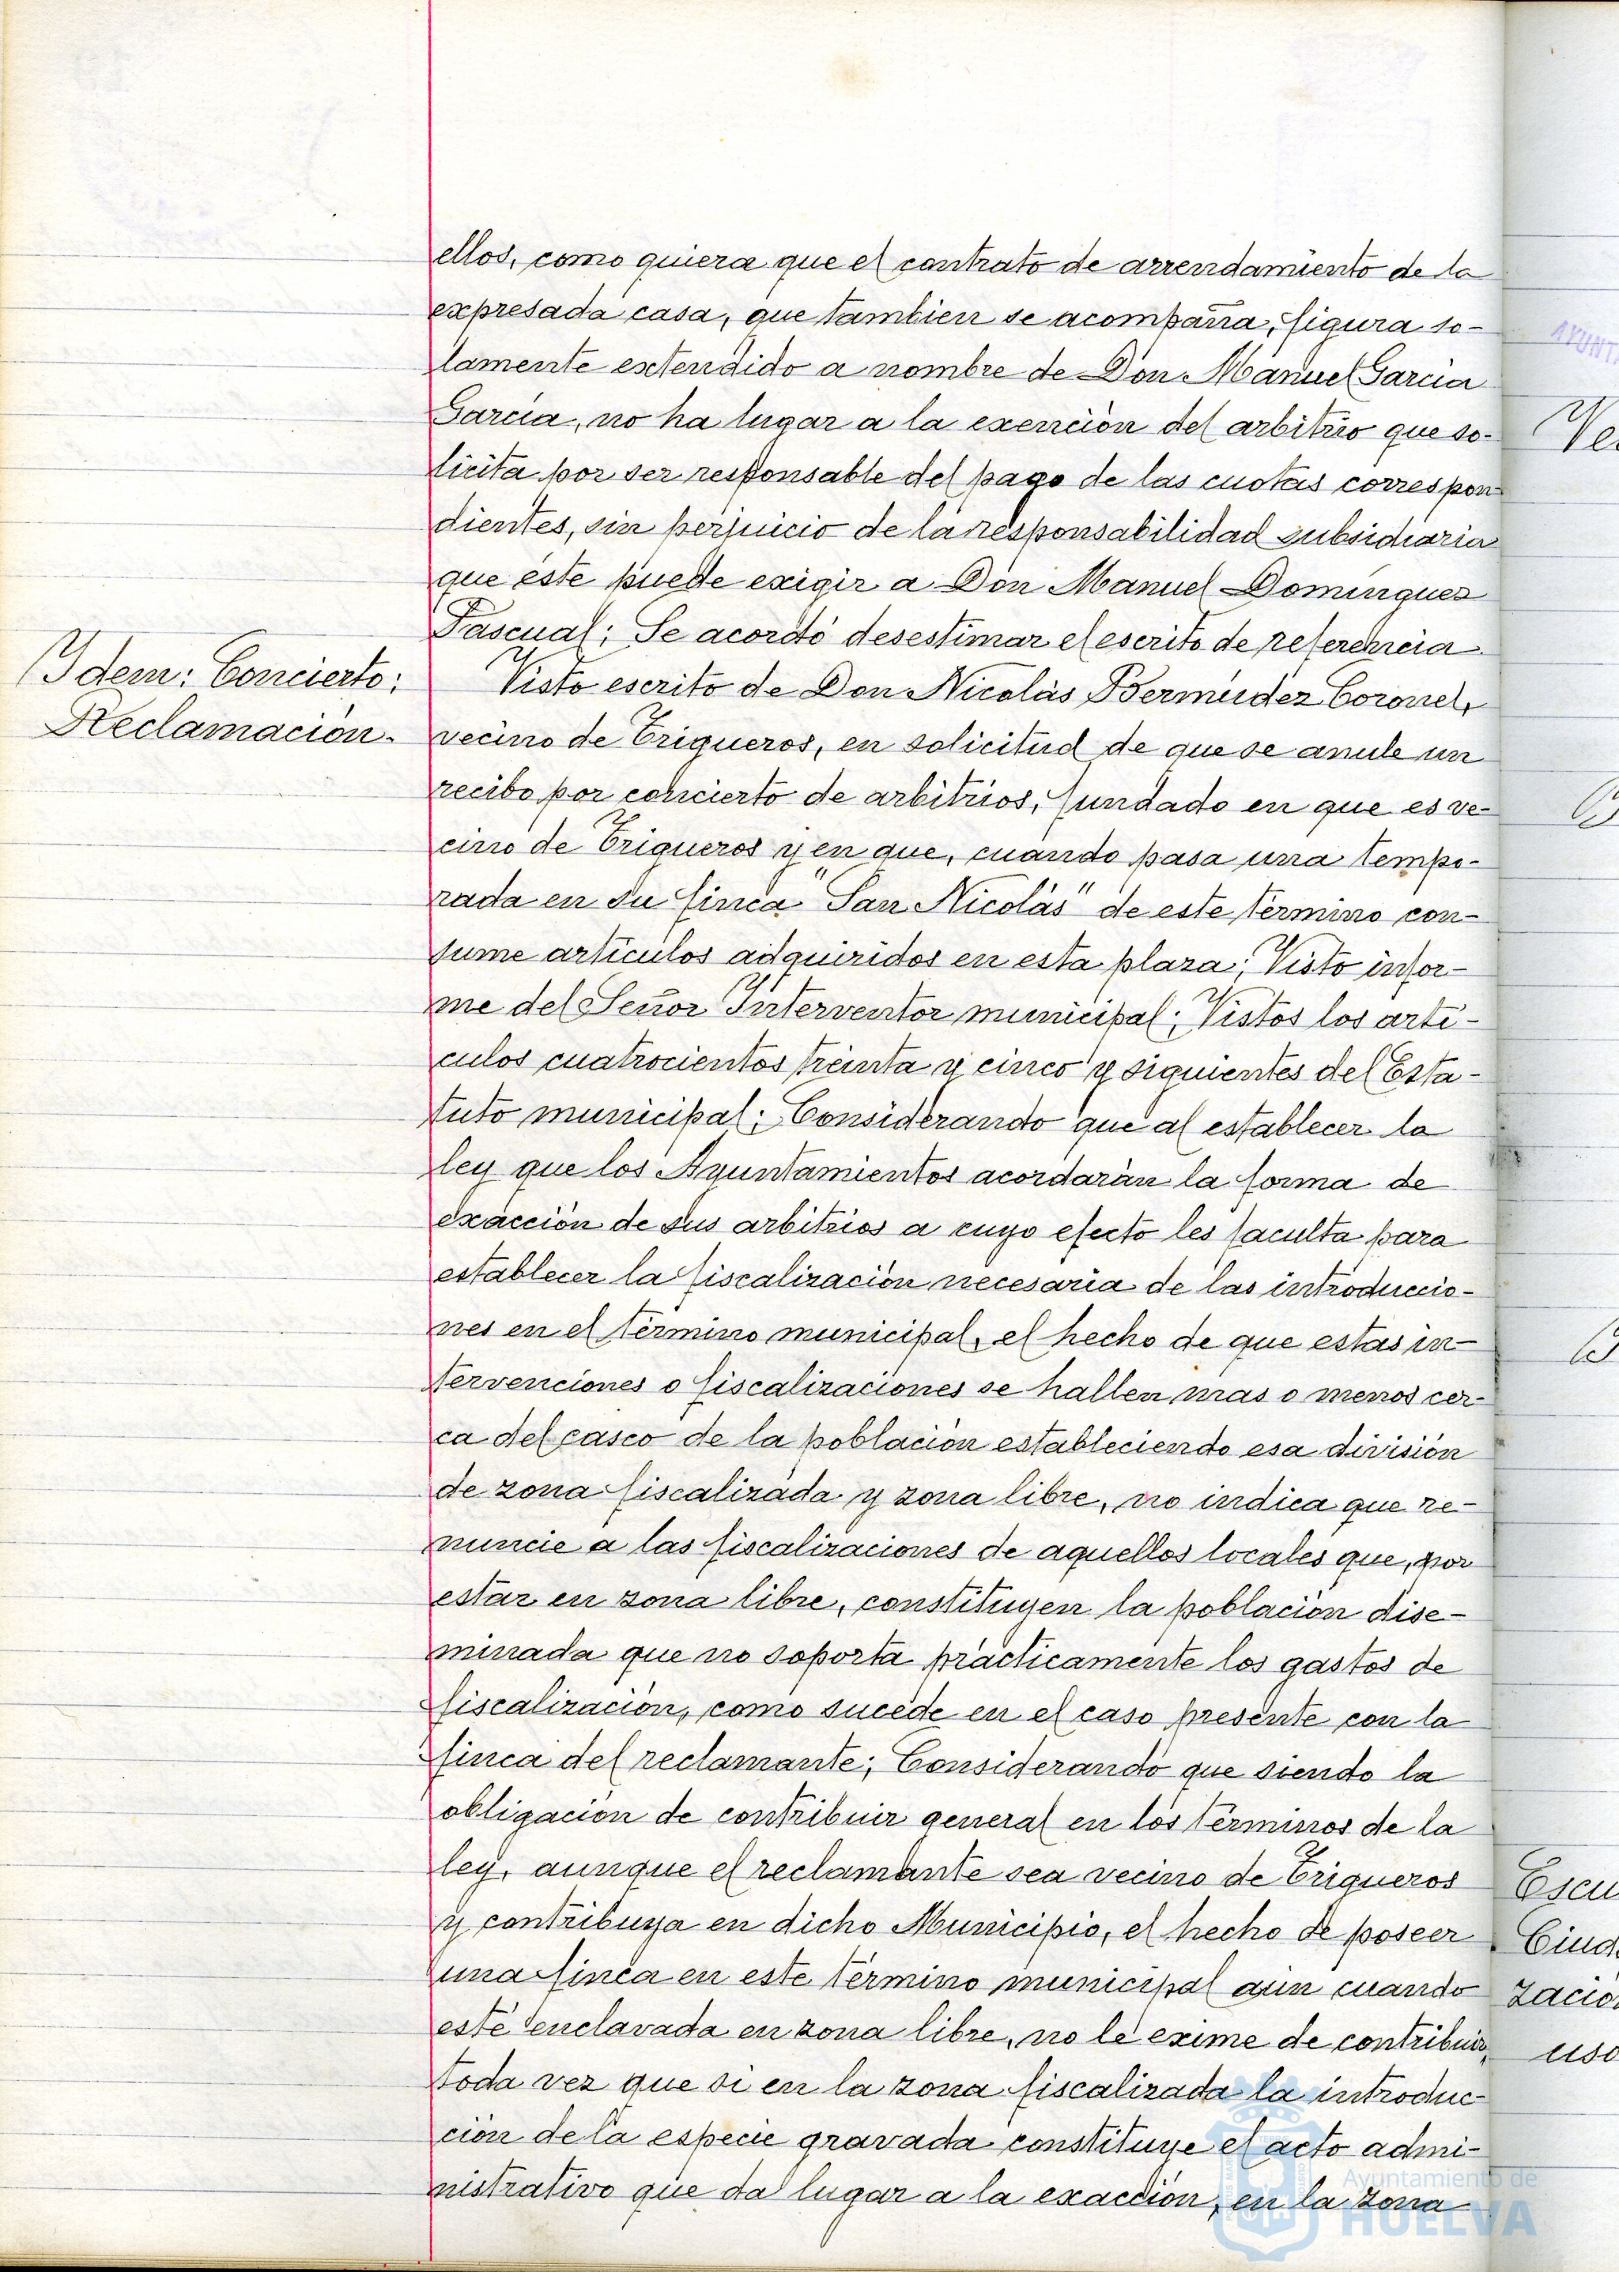 ellos, como quiera que el contrato de arrendamiento de la
expresada casa, que tambien se acompaña, figura so-
lamente extendido a nombre de Don Manuel Garcia
Garcia, no ha lugar a la exención del arbitrio que so-
licita por ser responsable del pago de las cuotas correspon-
dientes, sin perjuicio de la responsabilidad subsidiaria
que éste puede exigir a Don Manuel Dominguez
Pascual; Se acordó desestimar el escrito de referencia.
Idem: Concierto:
Reclamación.
Visto escrito de Don Nicolás Bermúdez Coronel,
vecino de Trigueros, en solicitud de que se anule un
recibo por concierto de arbitrios, fundado en que es ve-
cino de Trigueros y en que, cuando pasa una tempo-
rada en su finca "San Nicolás" de este término con-
sume artículos adquiridos en esta plaza; Visto infor-
me del Señor Interventor municipal; Vistos los artí-
culos cuatrocientos treinta y cinco y siguientes del Esta-
tuto municipal; Considerando que al establecer la
ley que los Ayuntamientos acordarán la forma de
exacción de sus arbitrios a cuyo efecto les faculta para
establecer la fiscalización necesaria de las introduccio-
nes en el término municipal, el hecho de que estas in-
tervenciones o fiscalizaciones se hallen mas o menos cer-
ca del casco de la población estableciendo esa división
de zona fiscalizada y zona libre, no indica que re-
nuncie a las fiscalizaciones de aquellos locales que, por
estar en zona libre, constituyen la población dise-
minada que no soporta prácticamente los gastos de
fiscalización, como sucede en el caso presente con la
finca del reclamante; Considerando que siendo la
obligación de contribuir general en los términos de la
ley, aunque el reclamante sea vecino de Trigueros
y contribuya en dicho Municipio, el hecho de poseer
una finca en este término municipal aún cuando
esté enclavada en zona libre, no le exime de contribuir,
toda vez que si en la zona fiscalizada la introduc-
ción de la especie gravada constituye el acto admi-
nistrativo que da lugar a la exacción, en la zona
Ayuntamiento de
HUELVA